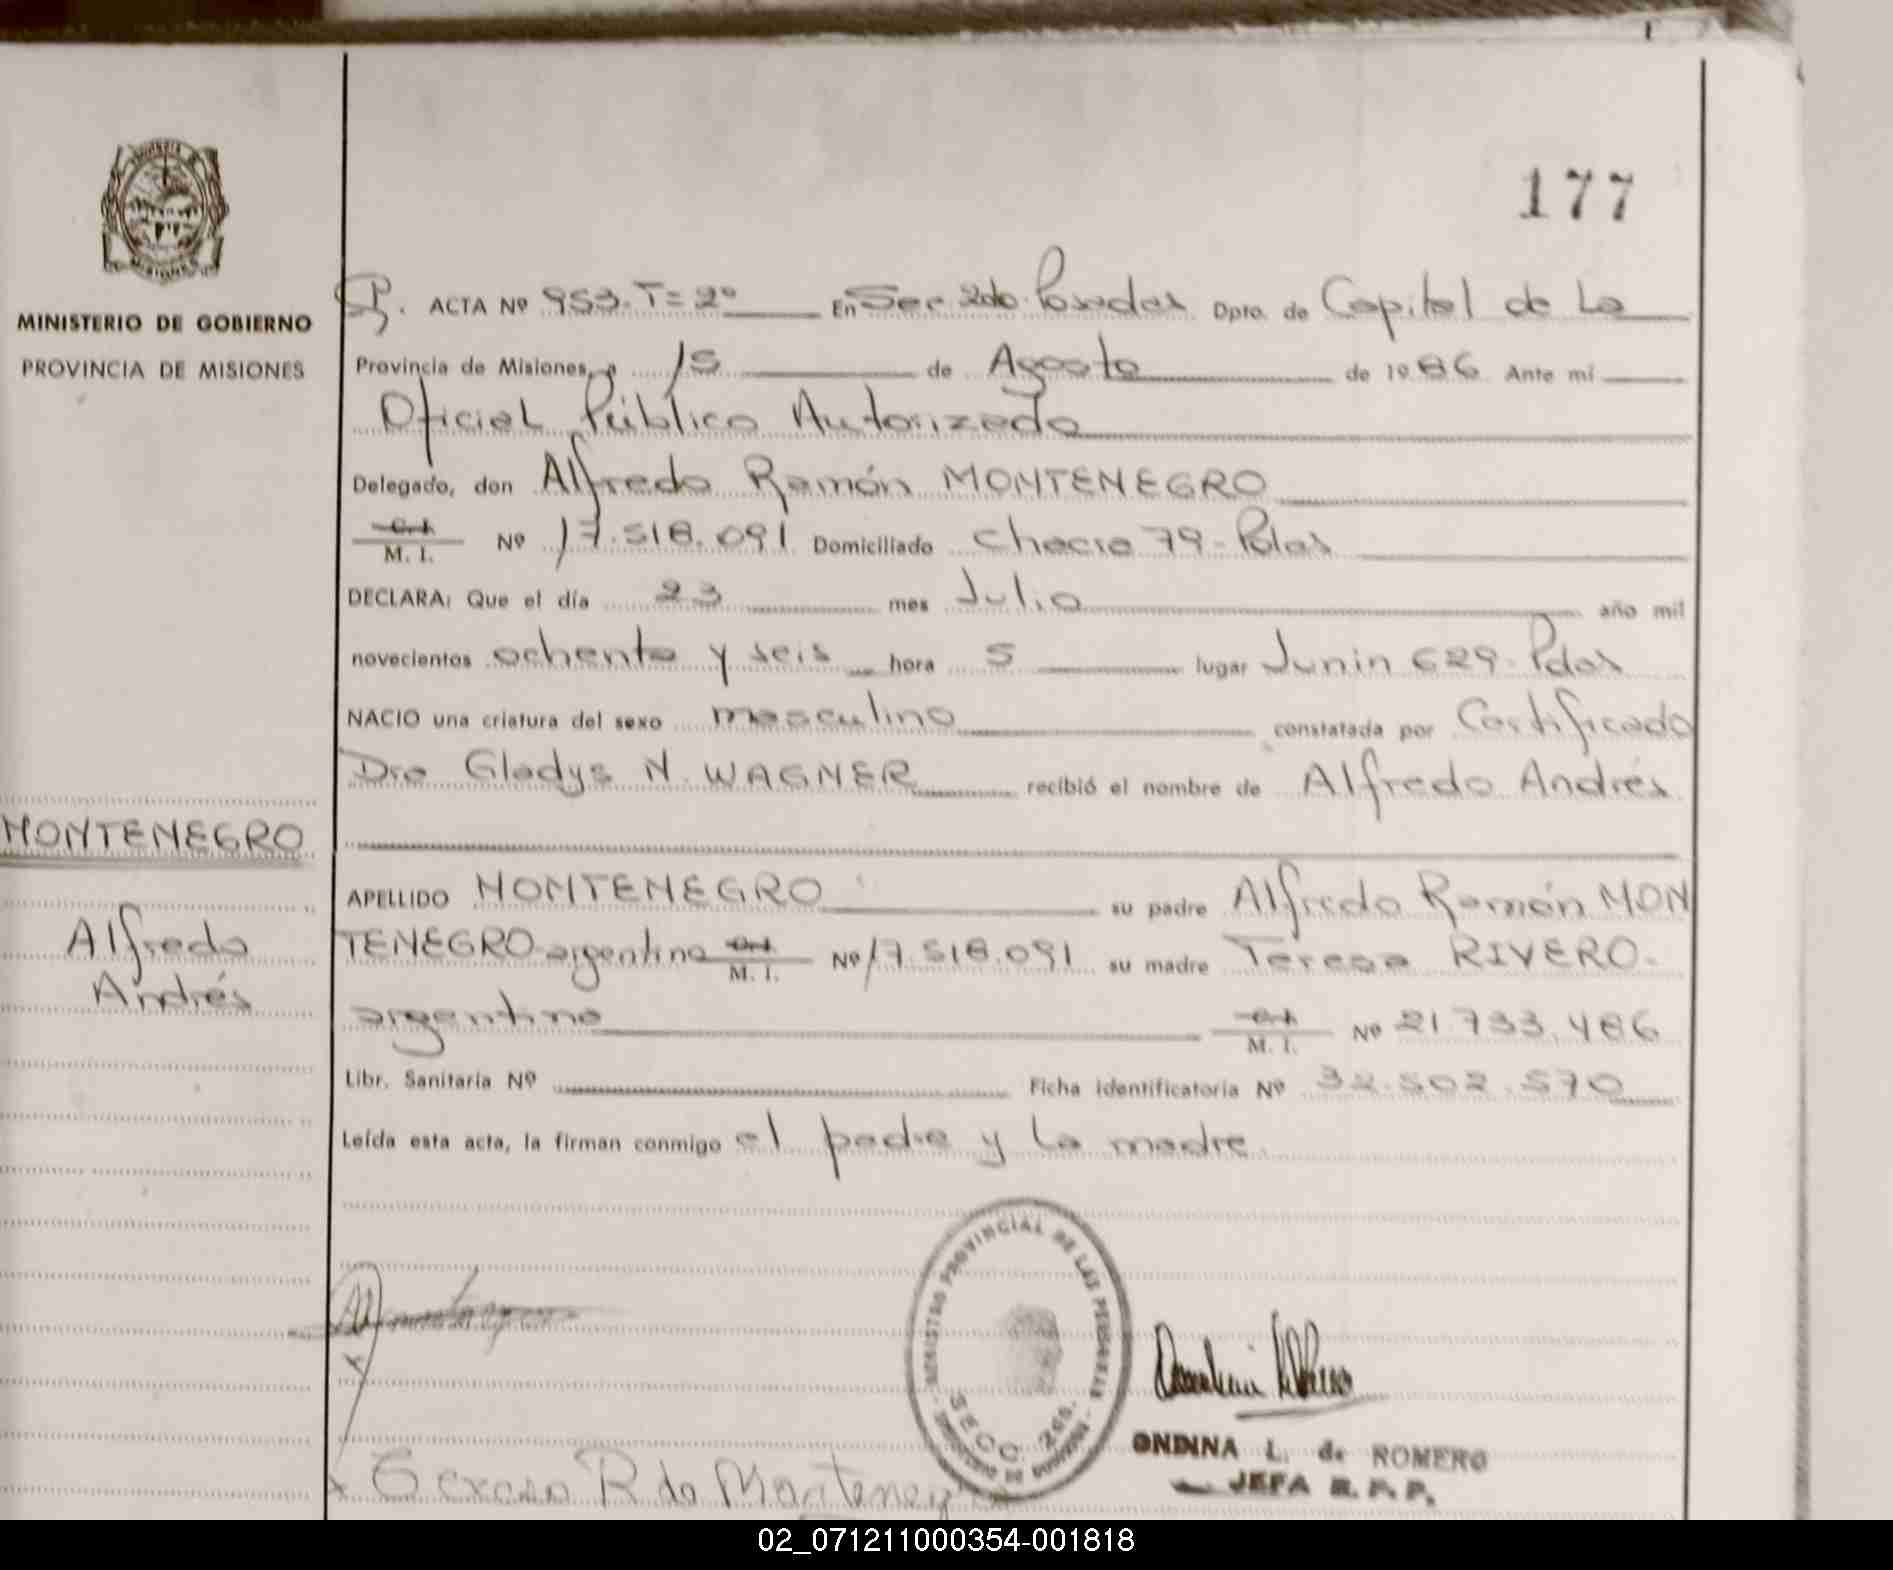 177
MINISTERIO DE GOBIERNO
PROVINCIA DE MISIONES
MONTENEGRO
Alfredo
Andrés
ACTA Nº 953. T= 2º En Sec 2do. Posadas Dpto. de Capital de La
Provincia de Misiones, a 15 de Agosto de 1986 Ante mí
Oficial Público Autorizado
Delegado, don Alfredo Ramón MONTENEGRO
C.I. M. I. Nº 17.518.091 Domiciliado Chacra 79-Pdas
DECLARA: Que el día 23 mes Julio año mil
novecientos ochenta y seis hora 5 lugar Junin 629-Pdas
NACIO una criatura del sexo masculino constatada por Certificado
Dra Gladys N. WAGNER recibió el nombre de Alfredo Andrés
APELLIDO MONTENEGRO su padre Alfredo Ramón MON
TENEGRO argentino C.I. M. I. Nº 17.518.091 su madre Teresa RIVERO.
argentina C.I. M. I. Nº 21.733.486
Libr. Sanitaria Nº Ficha identificatoria Nº 32.502.570
Leída esta acta, la firman conmigo el padre y la madre.
REGISTRO PROVINCIAL DE LAS PERSONAS
SECC. 2da.
Teresa R de Montenegro
ONDINA L. de ROMERO
JEFA R. P. P.
02_071211000354-001818